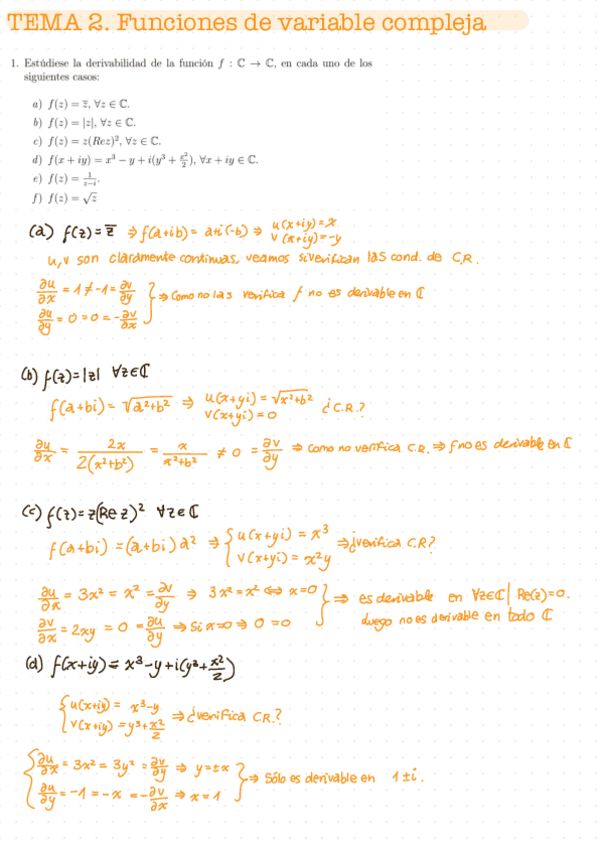 TEMA 2. Funciones de variable compleja
1. Estúdiese la derivabilidad de la función f : ℂ → ℂ, en cada uno de los
siguientes casos:
a) f(z) = z̅, ∀z ∈ ℂ.
b) f(z) = |z|, ∀z ∈ ℂ.
c) f(z) = z(Rez)², ∀z ∈ ℂ.
d) f(x + iy) = x³ − y + i(y³ + x²/2), ∀x + iy ∈ ℂ.
e) f(z) = 1/(z−i).
f) f(z) = √z
(a) f(z) = z̅ ⇒ f(a+ib) = a+i(-b) ⇒ u(x+iy) = x
v(x+iy) = -y
u, v son claramente continuas, veamos si verifican las cond. de C.R.
∂u/∂x = 1 ≠ -1 = ∂v/∂y
∂u/∂y = 0 = 0 = -∂v/∂x } ⇒ Como no las verifica f no es derivable en ℂ
(b) f(z) = |z| ∀z∈ℂ
f(a+bi) = √a²+b² ⇒ u(x+yi) = √x²+b²
v(x+yi) = 0 ¿C.R.?
∂u/∂x = 2x/2(x²+b²) = x/x²+b² ≠ 0 = ∂v/∂y ⇒ Como no verifica C.R. ⇒ f no es derivable en ℂ
(c) f(z) = z(Re z)² ∀z∈ℂ
f(a+bi) = (a+bi) a² ⇒ { u(x+yi) = x³
v(x+yi) = x²y ⇒ ¿verifica C.R?
∂u/∂x = 3x² = x² = ∂v/∂y ⇒ 3x² = x² ⇔ x=0
∂v/∂x = 2xy = 0 = -∂u/∂y ⇒ Si x=0 ⇒ 0=0 } ⇒ es derivable en ∀z∈ℂ | Re(z)=0.
luego no es derivable en todo ℂ
(d) f(x+iy) = x³-y+i(y³+x²/2)
{ u(x+iy) = x³-y
v(x+iy) = y³+x²/2 ⇒ ¿verifica CR.?
{ ∂u/∂x = 3x² = 3y² = ∂v/∂y ⇒ y=±x
∂u/∂y = -1 = -x = -∂v/∂x ⇒ x=1 } ⇒ Sólo es derivable en 1±i.